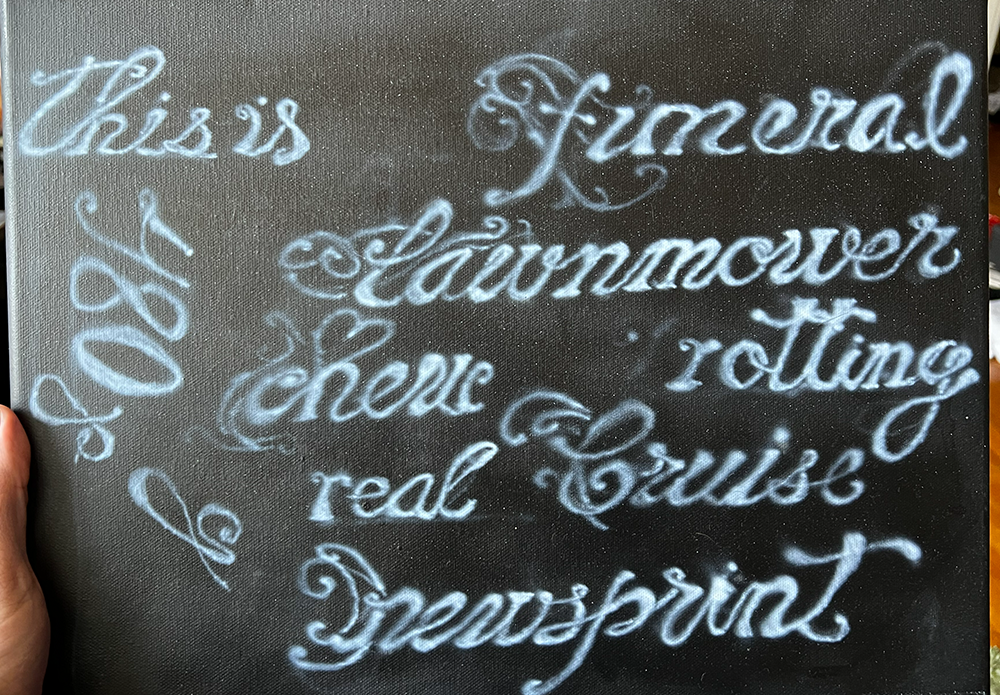 This is Funeral
Lawnmower
rotting
real Cruise
Newsprint